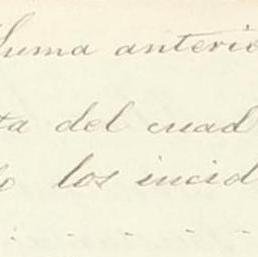 Suma anterio
ta del cuad
los incid